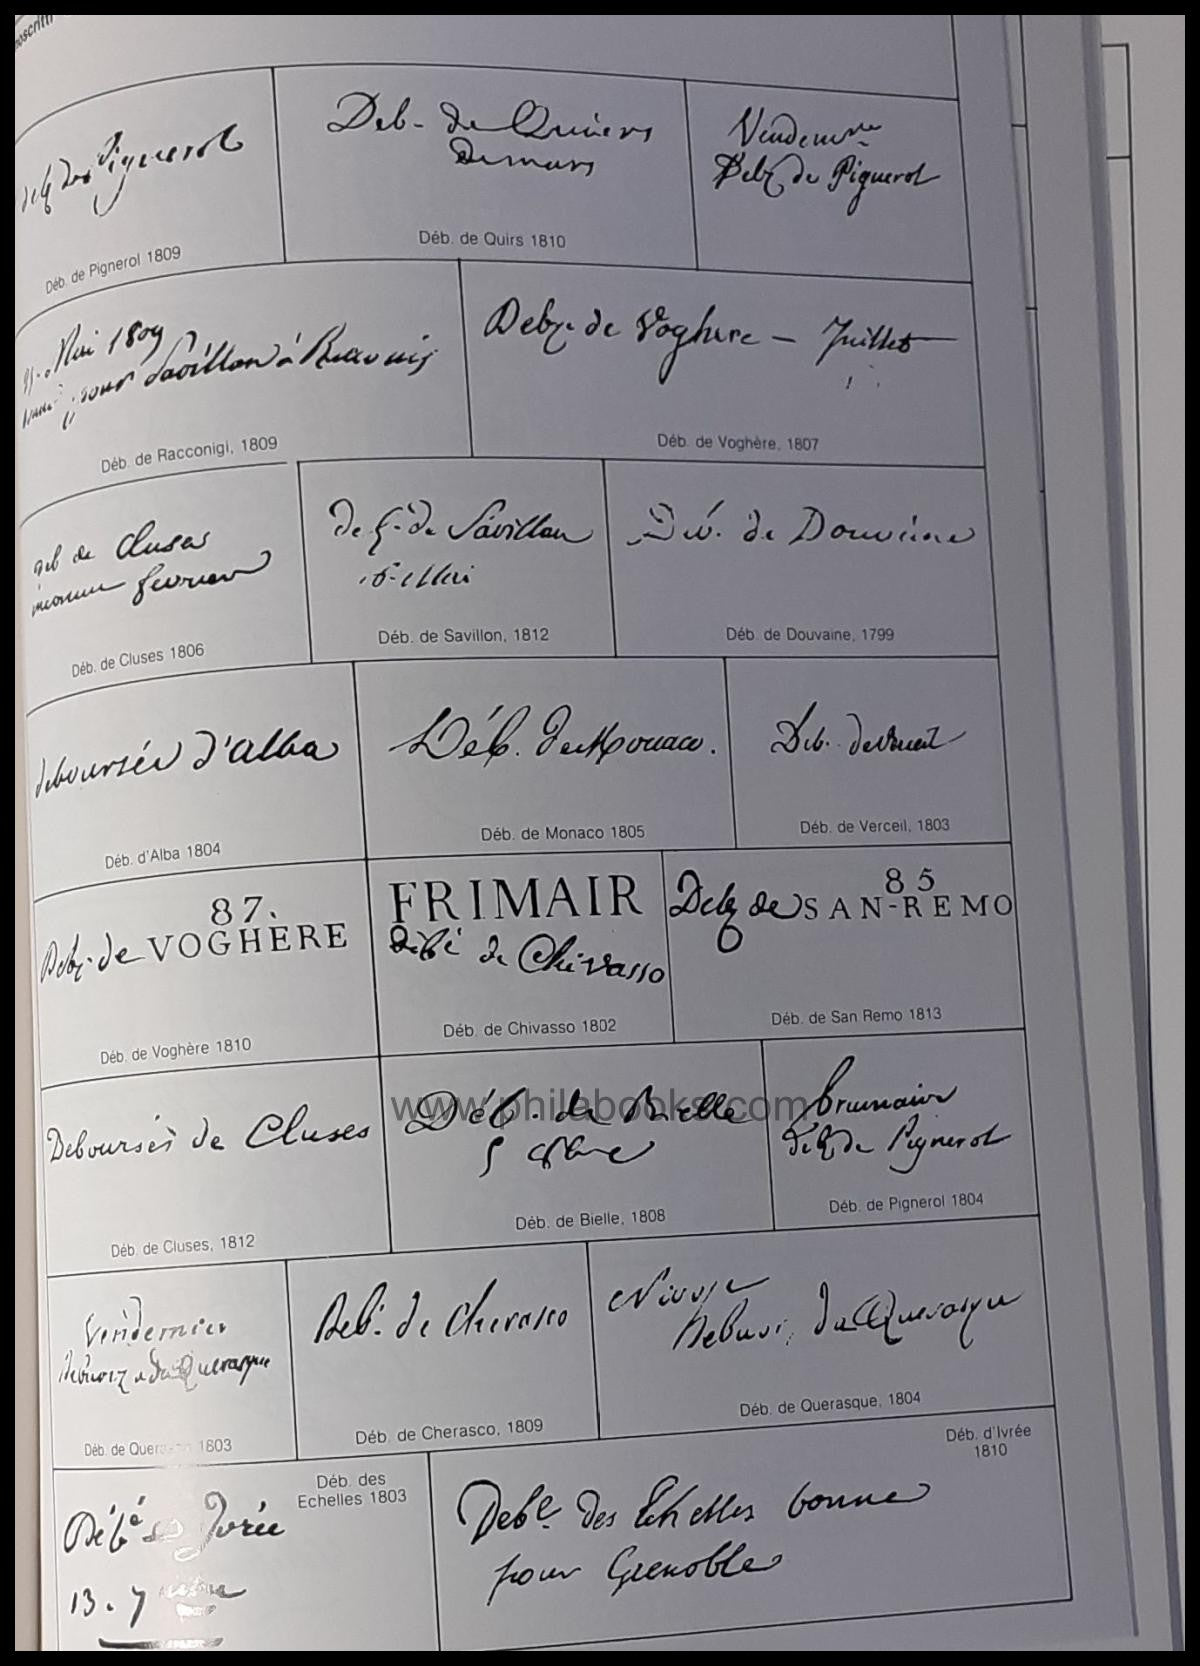 Deb- de Quiers
de mars
Déb. de Quirs 1810
de Pignerol
Déb. de Pignerol 1809
Vendemre
Debz de Pignerol
Mai 1809
pour Savillan à
Déb. de Racconigi, 1809
Debz. de Voghere - Juillet
Déb. de Voghère, 1807
deb de Cluses
fevrier
Déb. de Cluses 1806
de Savillan
Mai
Déb. de Savillon, 1812
Déb. de Douvaine
Déb. de Douvaine, 1799
deboursés d'alba
Déb. d'Alba 1804
Déb. de Monaco.
Déb. de Monaco 1805
Deb. de
Déb. de Verceil, 1803
87.
Debz. de VOGHÈRE
Déb. de Voghère 1810
FRIMAIR
Débé de Chivasso
Déb. de Chivasso 1802
85
Debz de SAN-REMO
Déb. de San Remo 1813
Deboursés de Cluses
Déb. de Cluses, 1812
www.philabooks.com
Déb. de Bielle
Déb. de Bielle, 1808
brumaire
de Pignerol
Déb. de Pignerol 1804
Vendemier
de Querasque
Déb. de 1803
Deb. de Cherasco
Déb. de Cherasco, 1809
Nivose
de Querasque
Déb. de Querasque, 1804
Déb. des
Echelles 1803
Débé Ivrée
13. 7
Déb. d'Ivrée
1810
Debe. des Echelles bonne
pour Grenoble